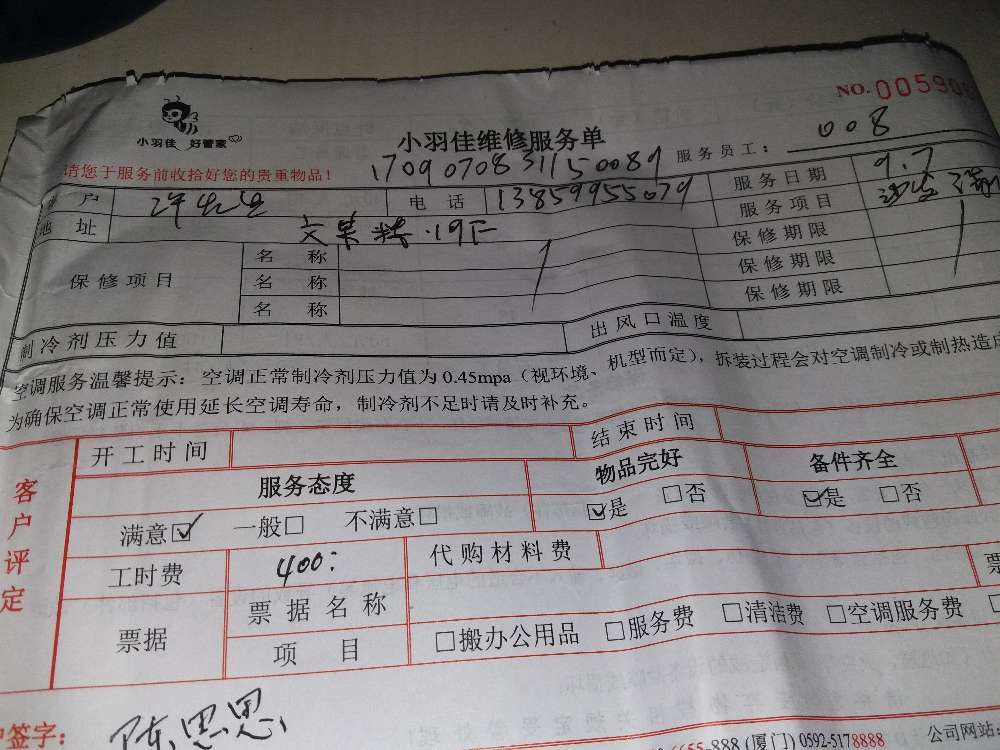 NO.00590
小羽佳 好管家
小羽佳维修服务单
008
服务员工：
请您于服务前收拾好您的贵重物品！
17090708311150089
户
电 话
13859955079
服务日期
9.7
地 址
19F
服务项目
保修项目
名 称
保修期限
名 称
保修期限
名 称
保修期限
制冷剂压力值
出风口温度
空调服务温馨提示：空调正常制冷剂压力值为0.45mpa（视环境、机型而定），拆装过程会对空调制冷或制热造成
为确保空调正常使用延长空调寿命，制冷剂不足时请及时补充。
客户评定
开工时间
结束时间
服务态度
物品完好
备件齐全
满意☑ 一般□ 不满意□
☑是 □否
☑是 □否
工时费
400:
代购材料费
票据
票据名称
项 目
□搬办公用品 □服务费 □清洁费 □空调服务费
票
户签字：
陈思思
6655-888 (厦门) 0592-5178888
公司网站: